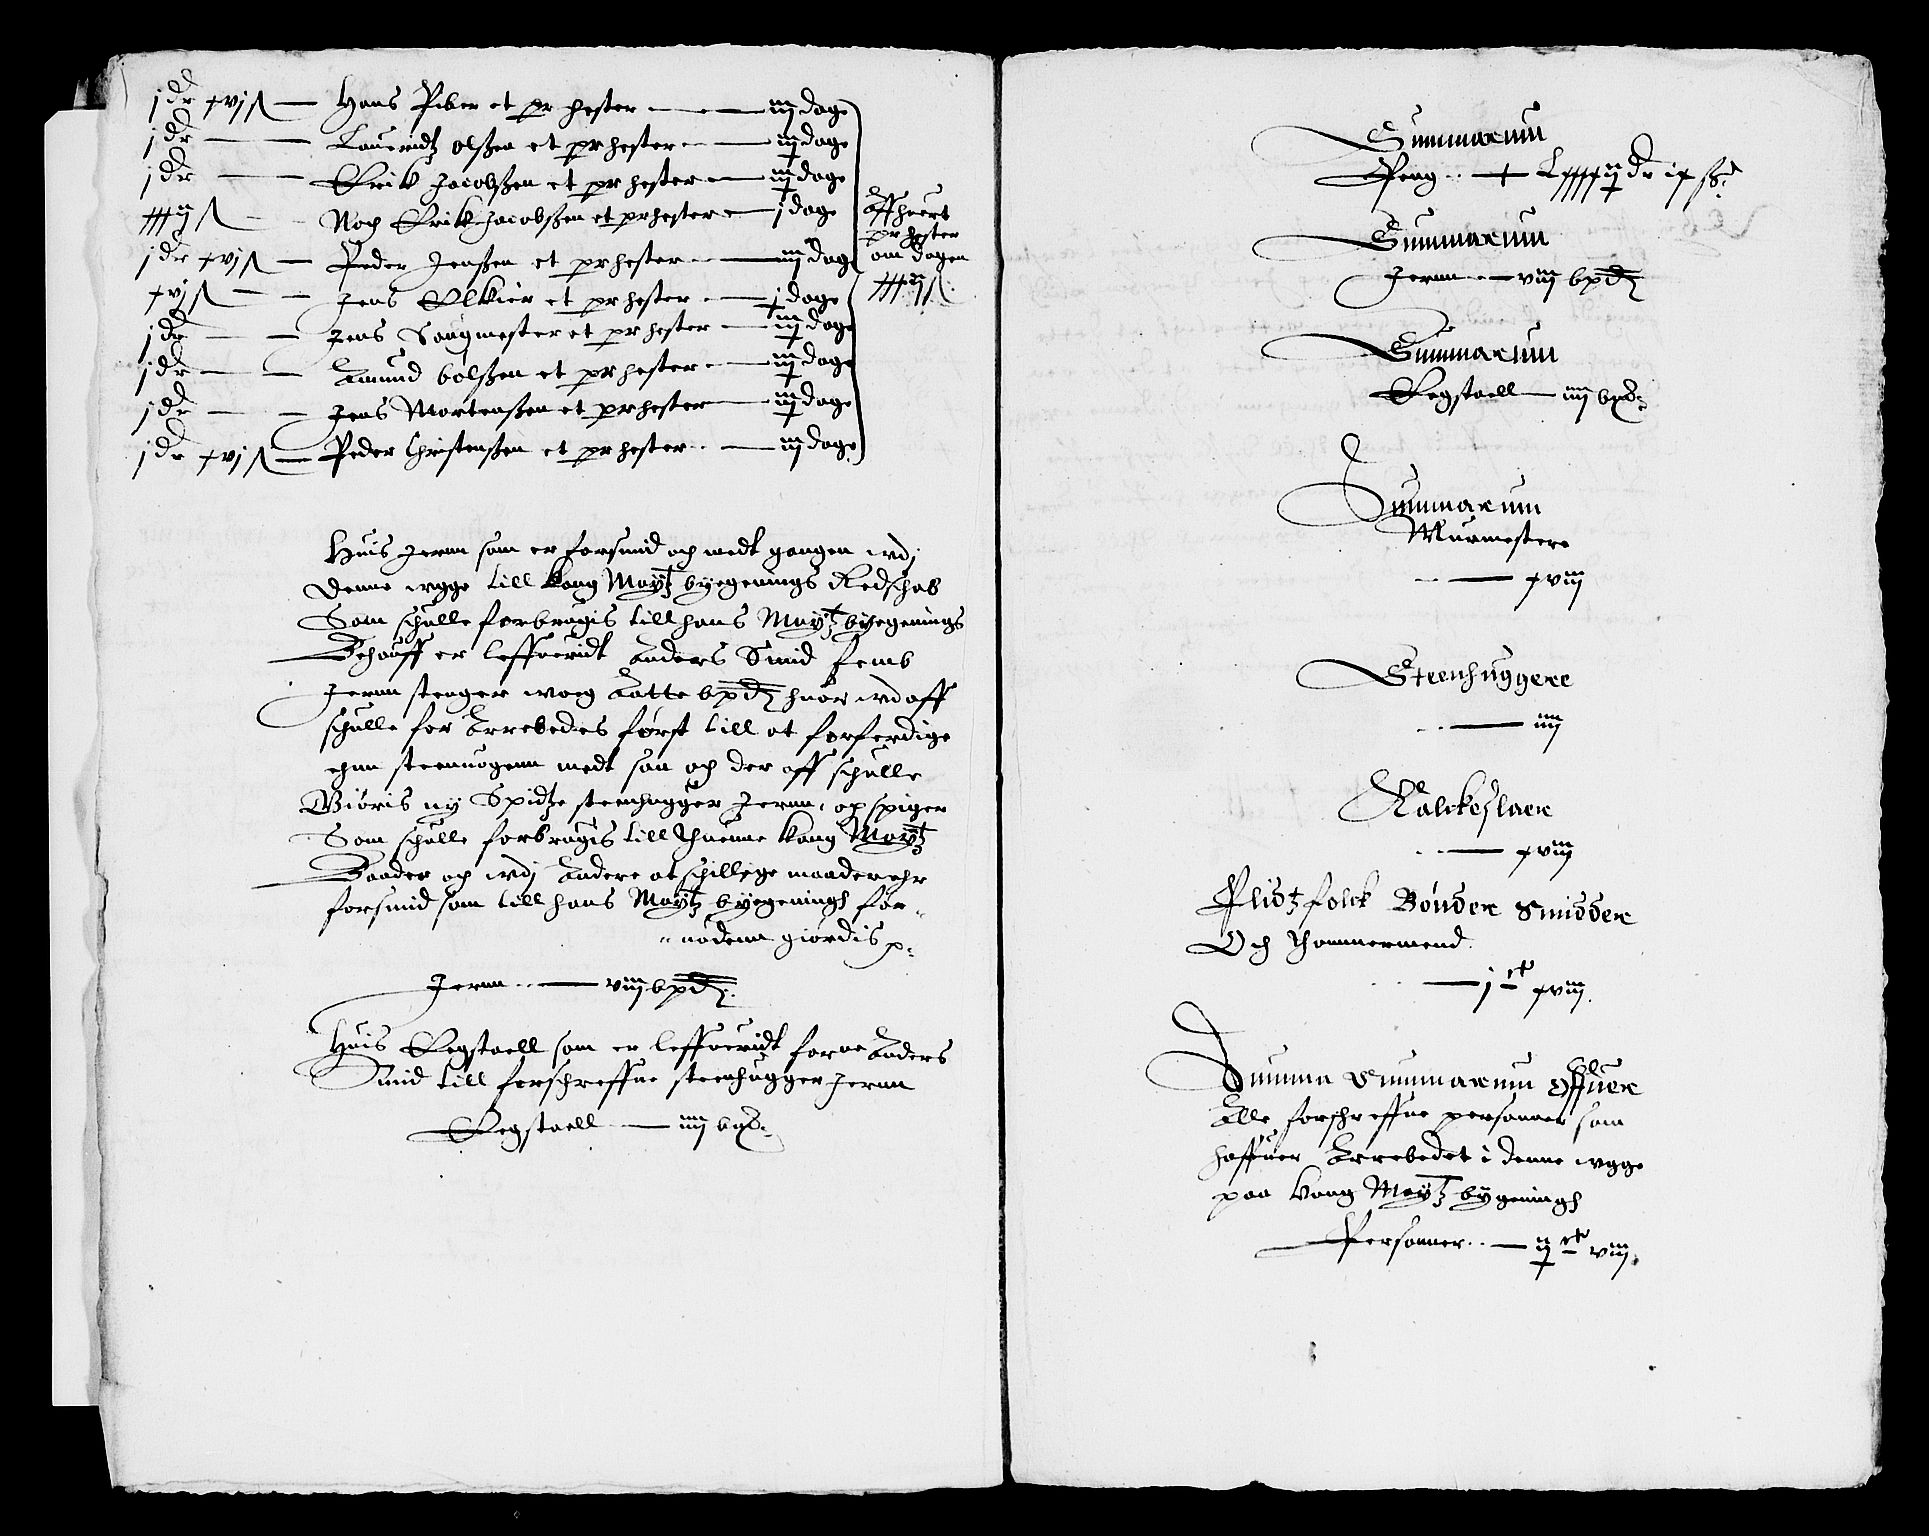 j dr xvj ß — Hans Piber et par hester — iiij dage
j dr — Lauridtz olßen et par hester — iij dage
j dr — Erik Jacobßen et par hester — iij dage
xxxij ß — Noch Erik Jacobßen et par hester — j dage
j dr xvj ß — Peder Jenßen et par hester — iiij dage
xvj ß — Jens Elkier et par hester — j dage
j dr — Jens Saugmester et par hester — iij dage
j dr — Amund bolßen et par hester — iij dage
j dr — Jens Mortenßen et par hester — iij dage
j dr xvj ß — Peder Christenßen et par hester — iiij dage
Aff huert
par hester
om dagen
xxxij ß
Huis Jernn som er forsmid och medt gangen wdj
denne wgge till kong Maytz byegenings Redschab
Som schulle forbrugis till hans Maytz byegenings
Behouff er leffueridt Anders Smid femb
Jernn stenger woeg Aatte bpd huor wdaff
schulle for Arrebedes först till at forferdige
ehnn steenuogenn medt som och der aff schulle
Giöris ny Spidtze steenhugger Jernn, og spiger
Som schulle forbrugis till thuenne kong Maytz
Baader och wdj Andere atschillige maader ehr
forsmid som till hans Maytz byegeningh for-
nödenn giördis p
Jernn — viij bpd
Huis Eegstaell som er leffueridt forne Anders
Smid till forschreffne steenhugger Jernn
Eegstaell — iiij bpd
Summarum
Peng — L xxxxij dr ix ß
Summarum
Jernn — viij bpd
Summarum
Eegstaell — iiij bpd
Summarum
Muermestere
— xviij
Steenhuggere
— iiij
Kalckeslaer
— xviij
Plidtzfolck Bönder Smidder
Och Thommermend
— j ct xviij
Summa Summarum Offuer
Alle forschreffne personner som
haffuer Arrebedet i denne wgge
paa Kong Maytz bygeningh
Personner — ij ct viij